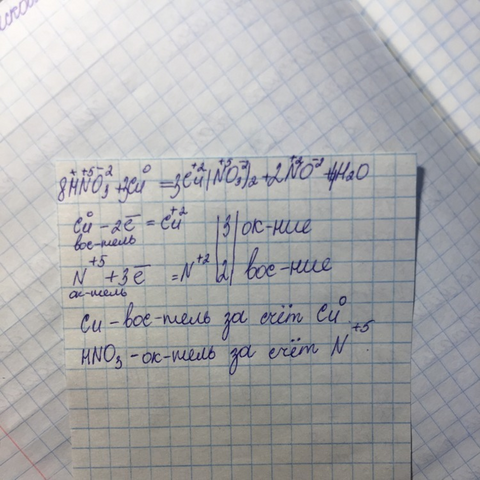 8H⁺N⁺⁵O₃⁻² + 3Cu⁰ = 3Cu⁺²(N⁺⁵O₃⁻²)₂ + 2N⁺²O⁻² + 4H₂O
Cu⁰ - 2e̅ = Cu⁺² | 3 | ок-ние
вос-тель
N⁺⁵ + 3e̅ = N⁺² | 2 | вос-ние
ок-тель
Cu - вос-тель за счёт Cu⁰
HNO₃ - ок-тель за счёт N⁺⁵.